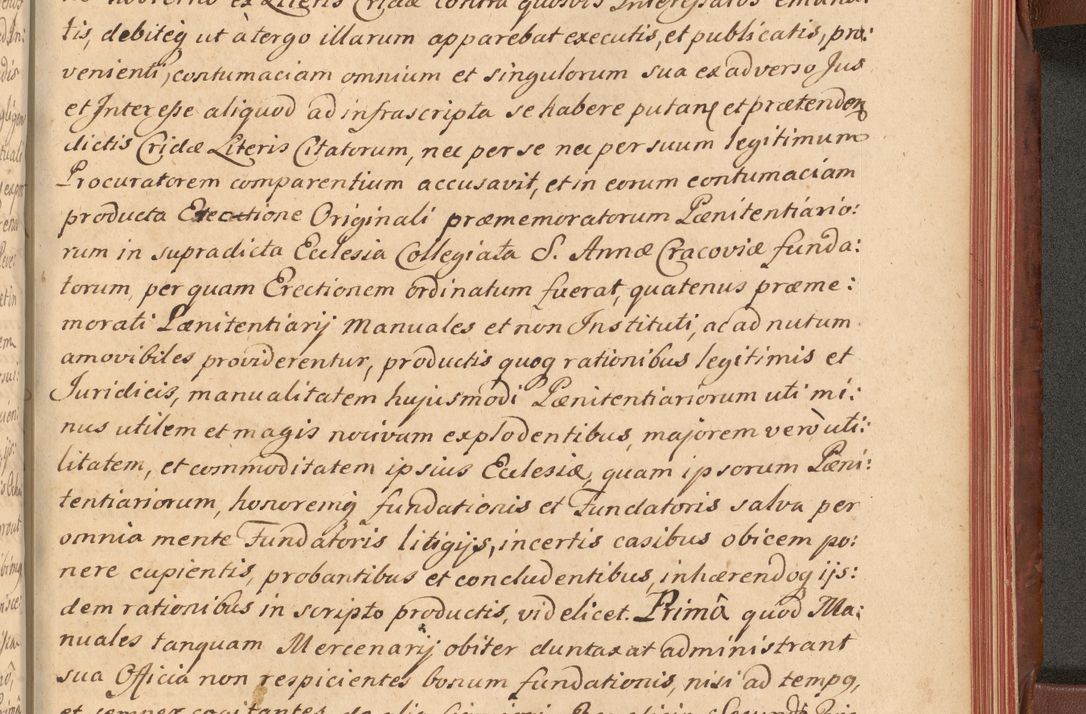 tis, debiteq ut à tergo illarum apparebat executis, et publicatis, pro:
venienti, contumaciam omnium et singulorum sua ex adverso Jus
et Interesse aliquod ad infrascripta se habere putan et prætenden
dictis Cridæ Literis Citatorum, nec per se nec per suum legitimum
Procuratorem comparentium accusavit, et in eorum contumaciam
producta Erectione Originali præmemoratorum Pænitentiario:
rum in supradicta Ecclesia Collegiata S. Annæ Cracoviæ funda:
torum, per quam Erectionem ordinatum fuerat, quatenus præme:
morati Pænitentiarij Manuales et non Instituti, ac ad nutum
amovibiles providerentur, productis quoq rationibus legitimis et
Juridicis, manualitatem hujusmodi Pænitentiariorum uti mi:
nus utilem et magis nocivam explodentibus, majorem verò uti:
litatem, et commoditatem ipsius Ecclesiæ, quam ipsorum Pæni:
tentiariorum, honoremq fundationis et Fundatoris salva per
omnia mente Fundatoris litigijs, incertis casibus obicem po:
nere cupientis, probantibus et concludentibus, inhærendoq ijs:
dem rationibus in scripto productis, videlicet. Primô quod Ma:
nuales tanquam Mercenarij obiter duntaxat administrant
sua Officia non respicientes bonum fundationis, nisi ad tempq,
et semper cogitantes